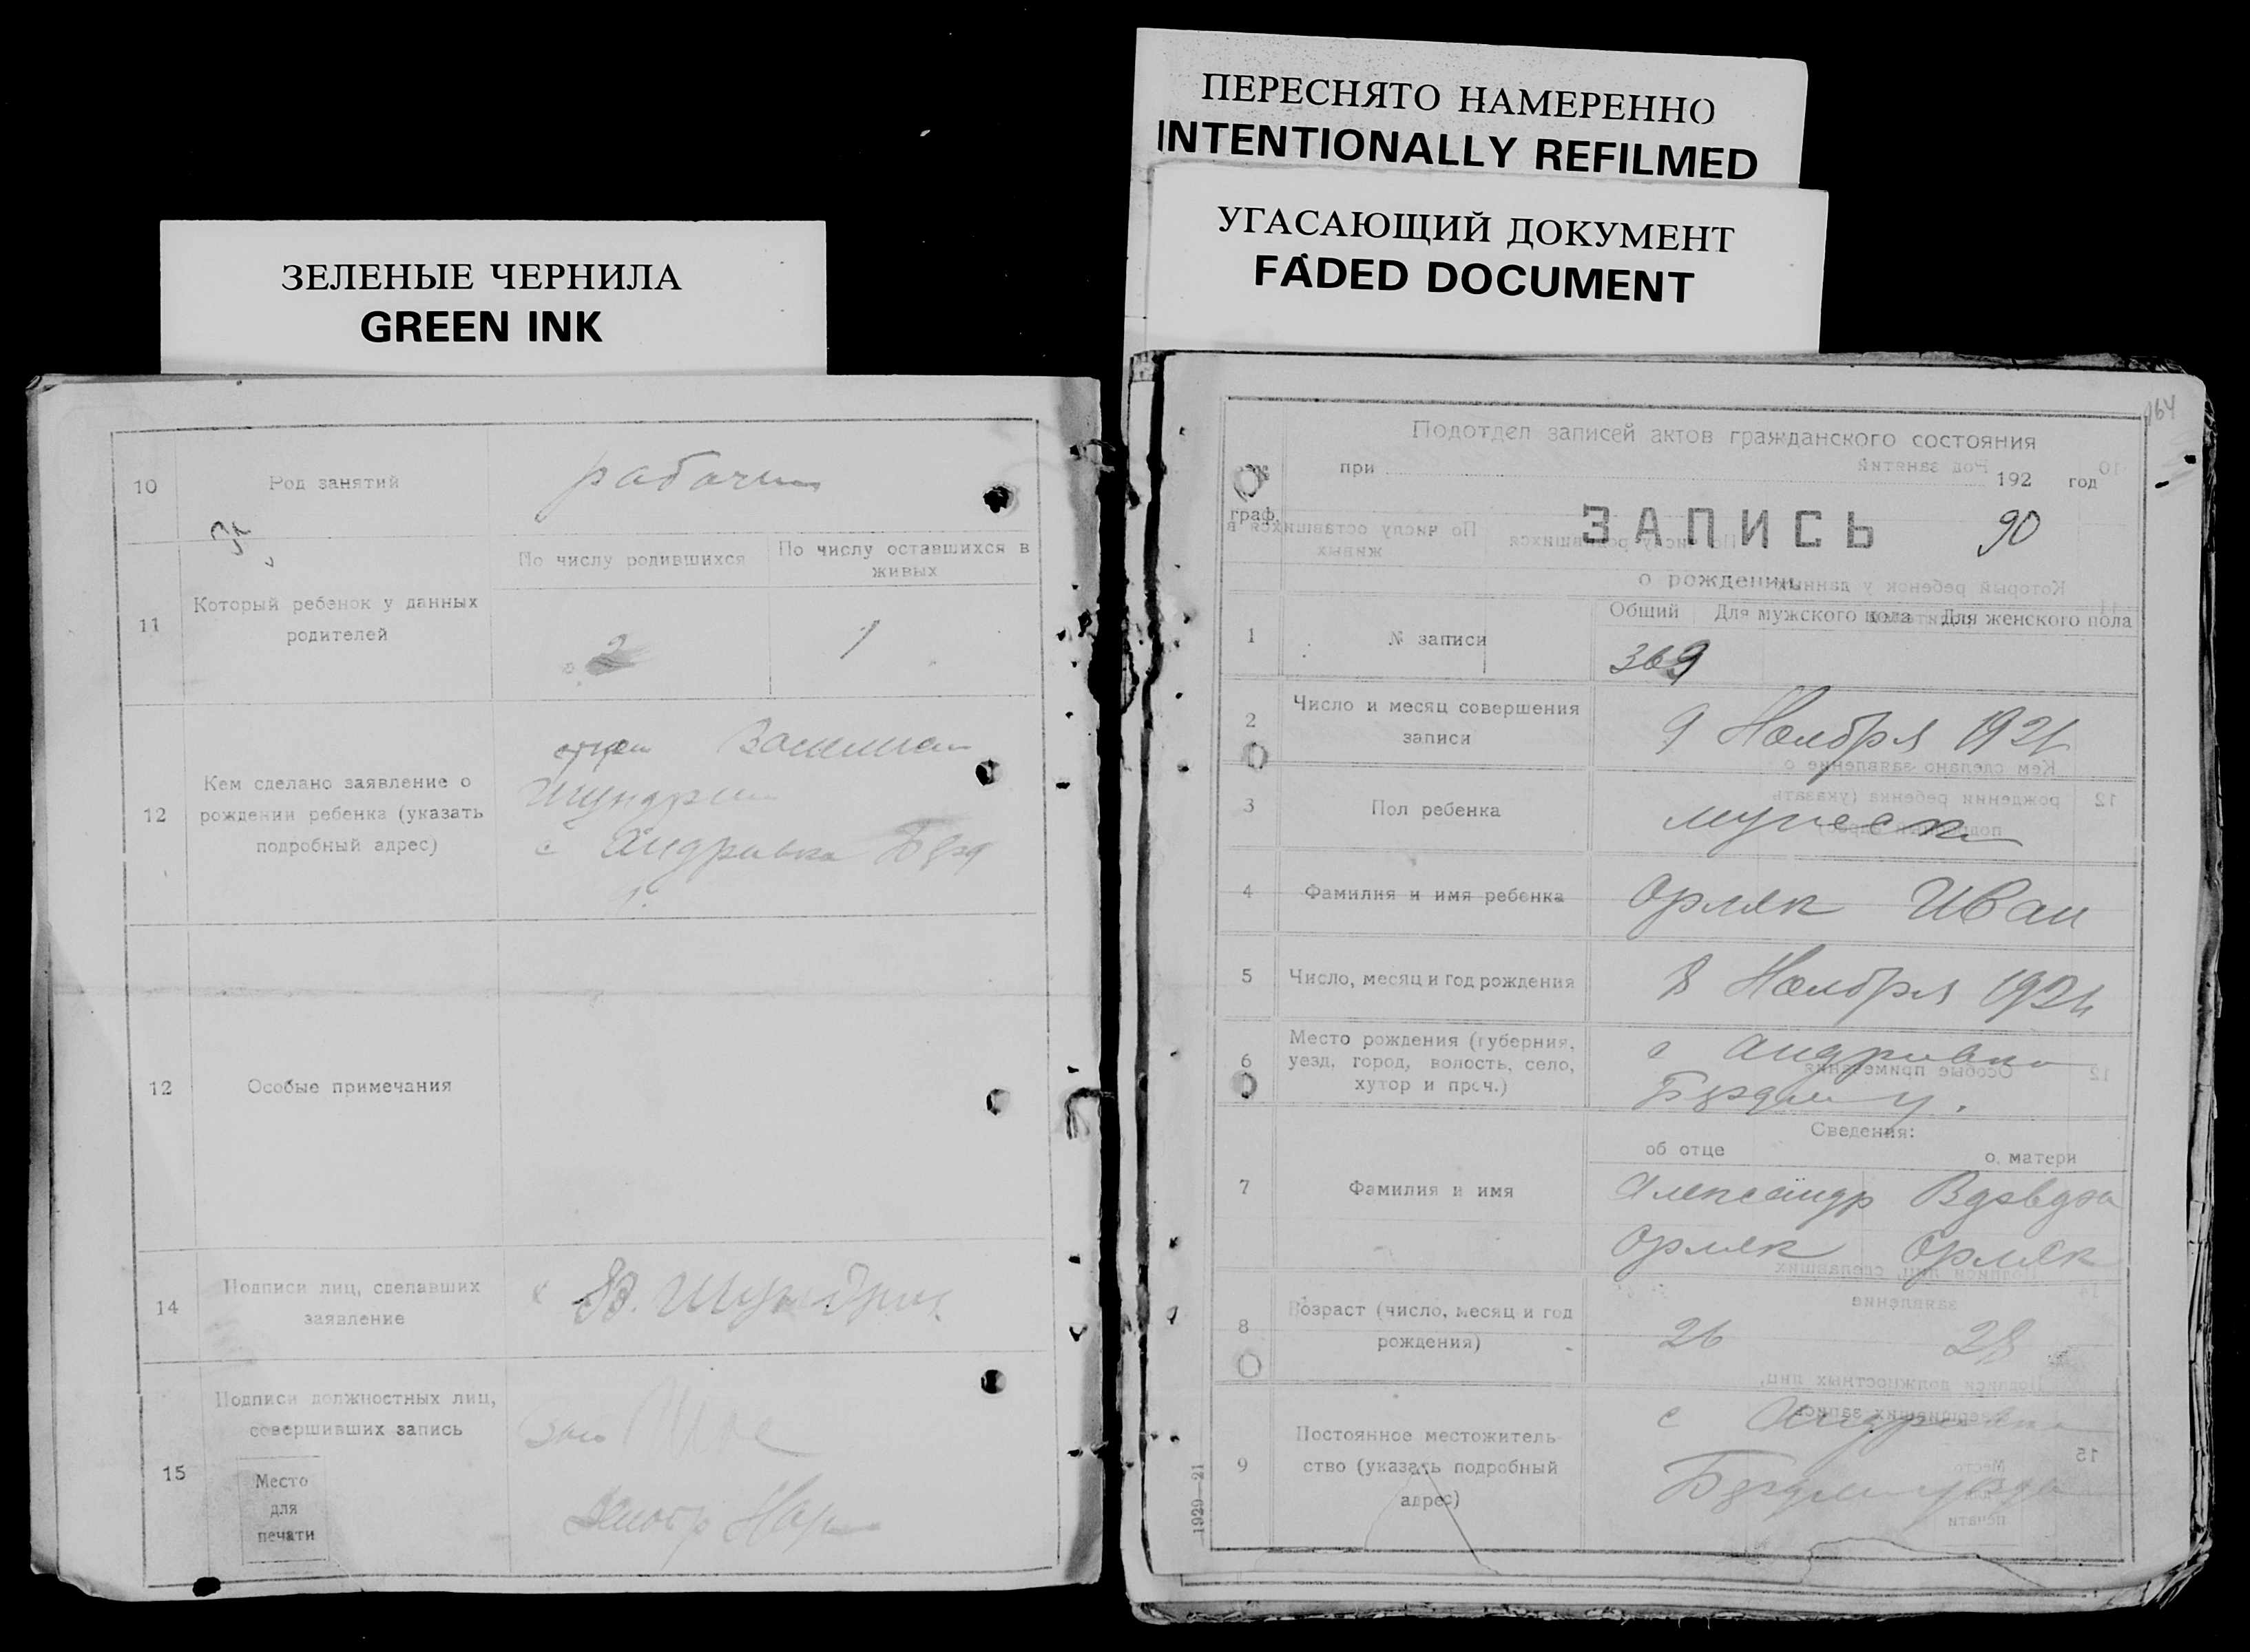 ПЕРЕСНЯТО НАМЕРЕННО
INTENTIONALLY REFILMED
УГАСАЮЩИЙ ДОКУМЕНТ
FADED DOCUMENT
ЗЕЛЕНЫЕ ЧЕРНИЛА
GREEN INK
10
Род занятий
рабочий
11
Который ребенок у данных
родителей
По числу родившихся
По числу оставшихся в
живых
2
1
12
Кем сделано заявление о
рождении ребенка (указать
подробный адрес)
отцем
с Андровка Берд
12
Особые примечания
14
Подписи лиц, сделавших
заявление
15
Подписи должностных лиц,
совершивших запись
Место
для
печати
Подотдел записей актов гражданского состояния
при
192 год
№
граф.
ЗАПИСЬ 90
о рождении
1
№ записи
Общий Для мужского пола Для женского пола
369
2
Число и месяц совершения
записи
9 Ноября 1921
3
Пол ребенка
4
Фамилия и имя ребенка
Орляк Иван
5
Число, месяц и год рождения
8 Ноября 1921
6
Место рождения (губерния,
уезд, город, волость, село,
хутор и проч.)
с Андровка
Бердян у.
Сведения:
об отце о матери
7
Фамилия и имя
Александр
Орляк Орляк
8
Возраст (число, месяц и год
рождения)
26 28
9
Постоянное местожитель-
ство (указать подробный
адрес)
с Андровка
Бердян уезда
1929—21